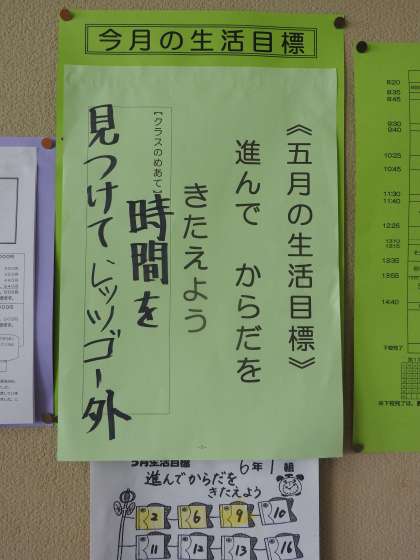 今月の生活目標
《五月の生活目標》
進んで からだを
きたえよう
【クラスのめあて】
時間を
見つけてレッツゴー外
5月生活目標
6年1組
進んでからだを
きたえよう
2 6 9 10
11 12 13 16
8:20
8:35
8:45
9:30
9:40
10:25
10:45
11:30
11:40
12:25
13:10
13:15
13:35
13:55
14:40
下校完了